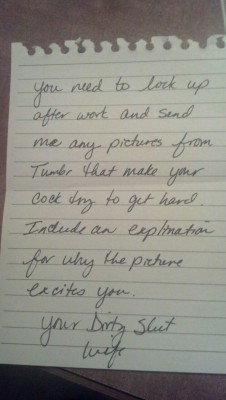 you need to lock up
after work and send
me any pictures from
Tumblr that make your
cock try to get hard.
Include an explination
for why the picture
excites you.
Your Dirty Slut
Wife